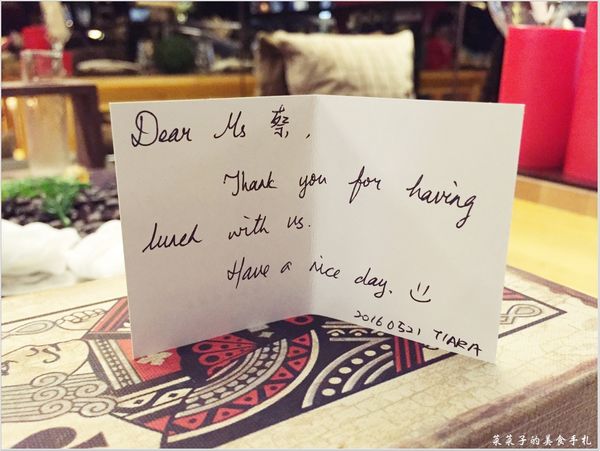 Dear Ms 蔡,
Thank you for having
lunch with us.
Have a nice day. :)
20160521 TIARA
菜菜子的美食手札